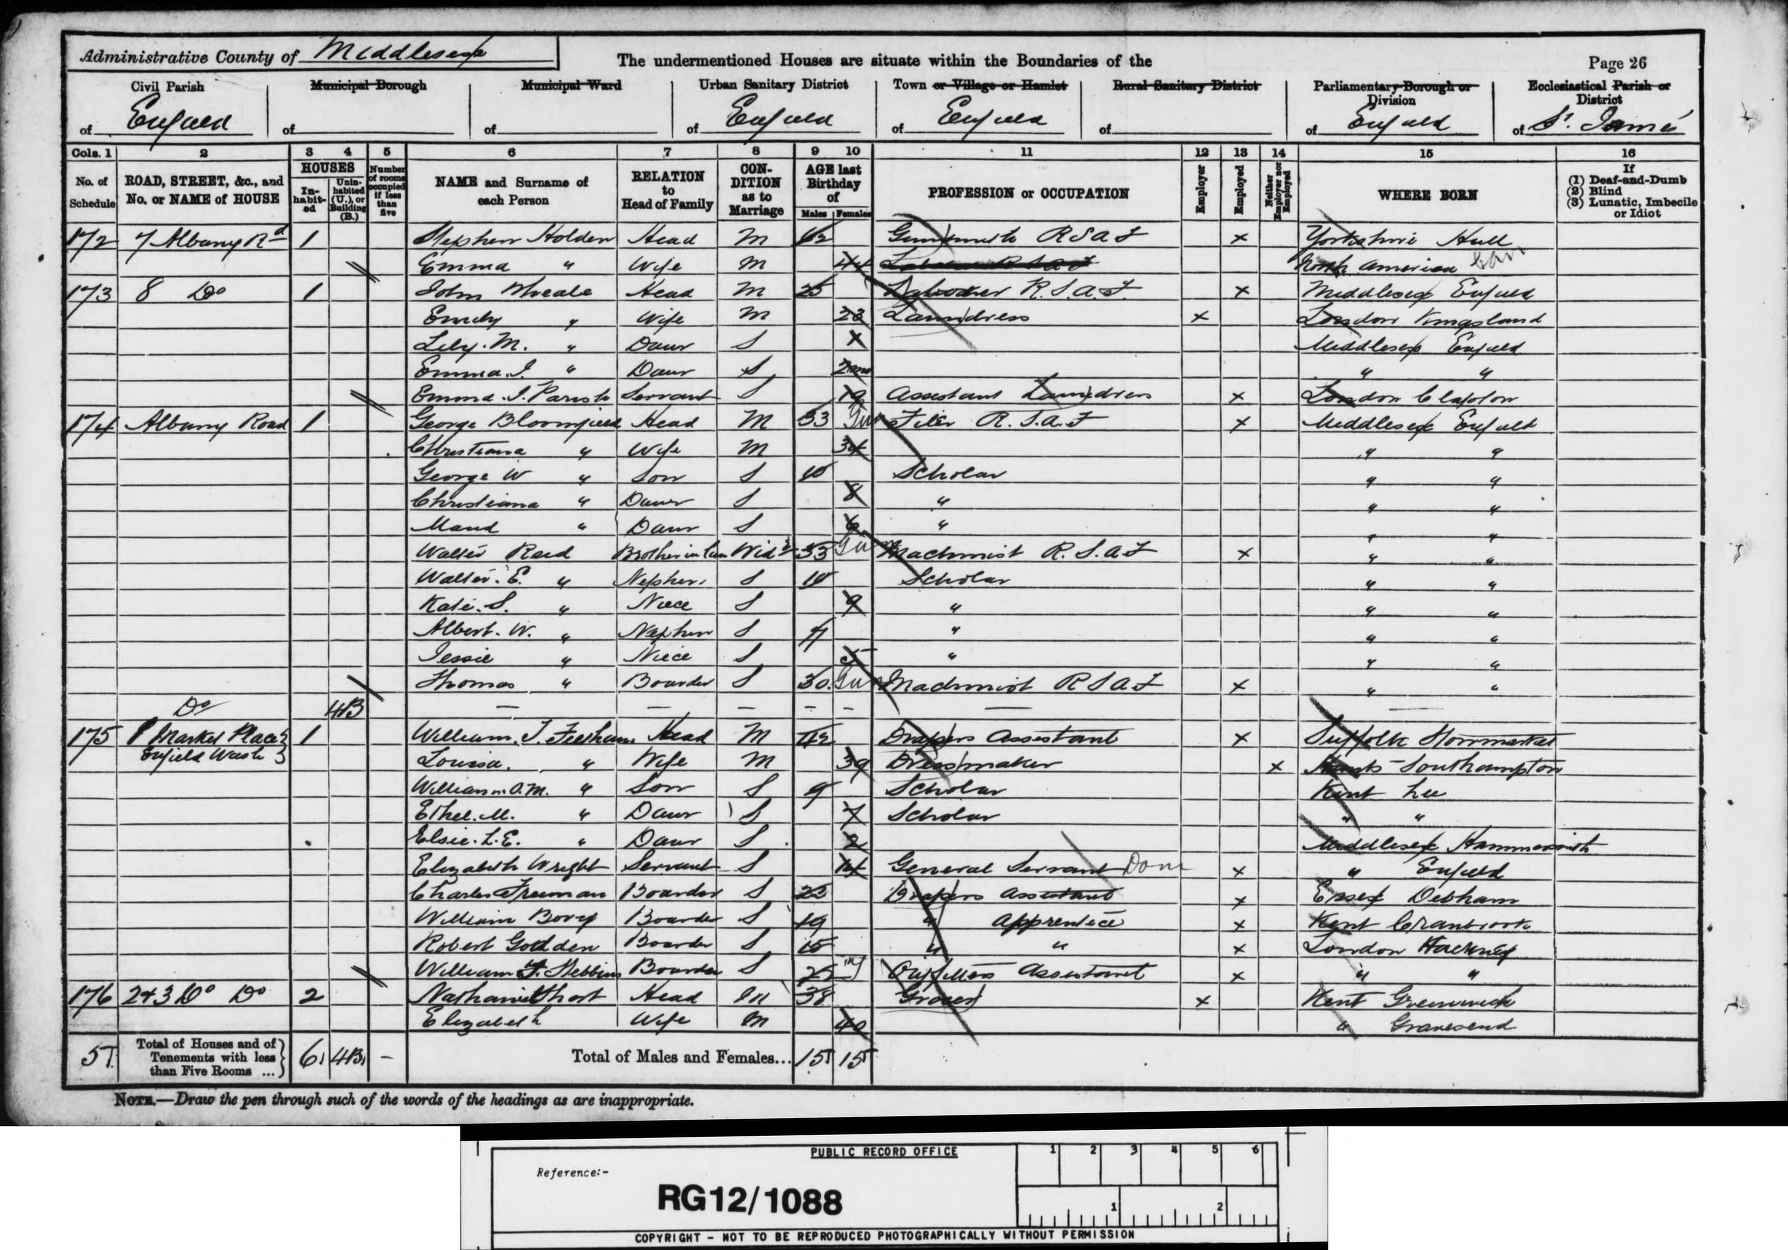 Administrative County of Middlesex
The undermentioned Houses are situate within the Boundaries of the
Page 26
Civil Parish of Enfield
Municipal Borough of
Municipal Ward of
Urban Sanitary District of Enfield
Town or Village or Hamlet of Enfield
Rural Sanitary District of
Parliamentary Borough or Division of Enfield
Ecclesiastical Parish or District of St. James
Cols. 1 2 3 4 5 6 7 8 9 10 11 12 13 14 15 16
No. of Schedule
ROAD, STREET, &c., and No. or NAME of HOUSE
HOUSES
In-habit-ed
Unin-habited (U.), or Building (B.)
Number of rooms occupied if less than five
NAME and Surname of each Person
RELATION to Head of Family
CON-DITION as to Marriage
AGE last Birthday of
Males Females
PROFESSION or OCCUPATION
Employer
Employed
Neither Employer nor Employed
WHERE BORN
If (1) Deaf-and-Dumb (2) Blind (3) Lunatic, Imbecile or Idiot
172 7 Albany Rd 1 Stephen Holden Head M 62 Gunsmith R S A F x Yorkshire Hull
Emma " Wife M 44 Labourer R S A F North American
173 8 Do 1 John Head M 25 Labourer R. S. A. F. x Middlesex Enfield
Emily " Wife M 23 Laundress x London Kingsland
Lily. M. " Daur S Middlesex Enfield
Emma. J. " Daur S 2 mo " "
Emma. J. Parish Servant S Assistant Laundress x London Clapton
174 Albany Road 1 George Bloomfield Head M 33 Gun Filer R. S. A. F x Middlesex Enfield
Christiana " Wife M 34 " "
George W " Son S 10 Scholar " "
Christiana " Daur S 8 " " "
Maud " Daur S 6 " " "
Walter Reed Brother in law Widr 33 Gun Machinist R. S. A. F x " "
Walter. E. " Nephew S 10 Scholar " "
Kate. S. " Niece S 9 " " "
Albert. W. " Nephew S 7 " " "
Jessie " Niece S 5 " " "
Thomas " Boarder S 30 Gun Machinist R S A F x " "
Do 4B — — — — — —
175 1 Market Place Enfield Wash 1 William. J. Feltham Head M 42 Drapers Assistant x Suffolk Stowmarket
Louisa. " Wife M 39 Dressmaker x Hants Southampton
William O. M. " Son S 9 Scholar Kent Lee
Ethel. M. " Daur S 7 Scholar " "
Elsie. L. E. " Daur S 2 Middlesex Hammersmith
Elizabeth Wright Servant S 14 General Servant Dom x " Enfield
Charles Freeman Boarder S 23 Drapers Assistant x Essex Dedham
William Bovey Boarder S 19 " Apprentice x Kent Cranbrook
Robert Godden Boarder S 15 " " x London Hackney
William F. Stebbins Boarder S 25 Outfitters Assistant x " "
176 2 & 3 Do Do 2 Nathaniel Short Head M 38 Grocer x Kent Greenwich
Elizabeth Wife M 40 " Gravesend
5 Total of Houses and of Tenements with less than Five Rooms ... 6 4B - Total of Males and Females... 15 15
NOTE.—Draw the pen through such of the words of the headings as are inappropriate.
PUBLIC RECORD OFFICE
1 2 3 4 5 6
Reference:-
RG12/1088
1 2
COPYRIGHT - NOT TO BE REPRODUCED PHOTOGRAPHICALLY WITHOUT PERMISSION